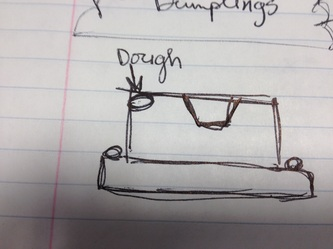 Dumplings
Dough